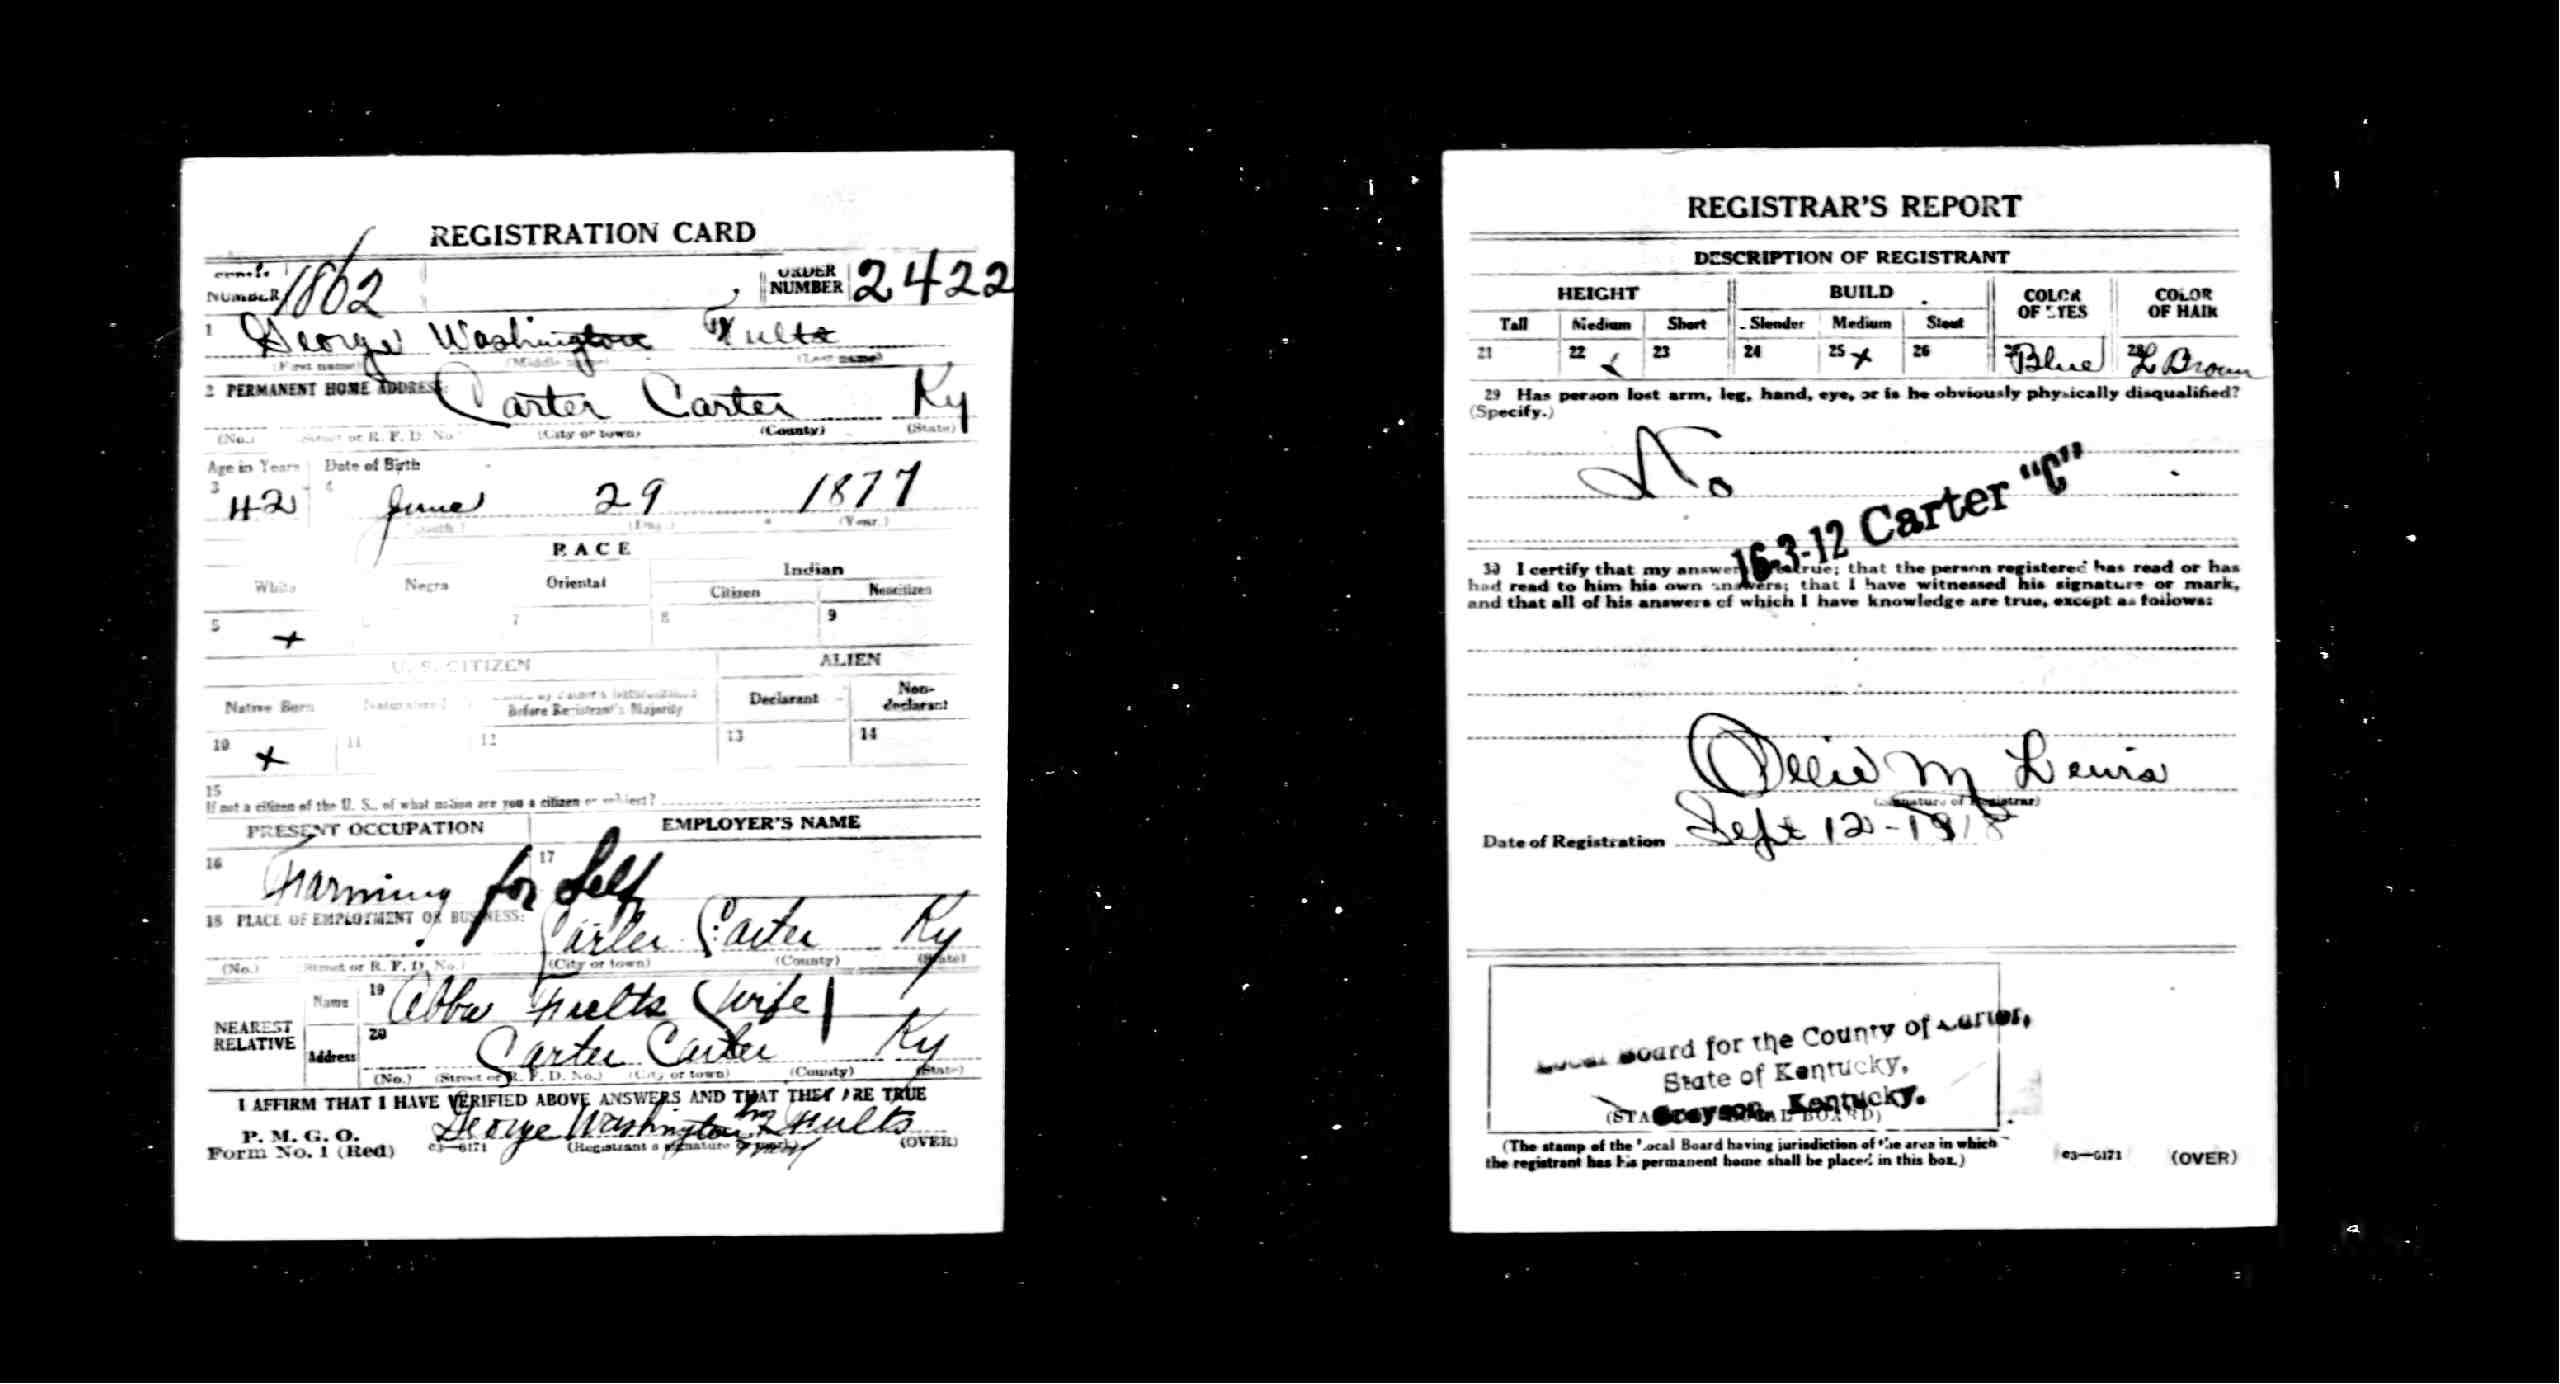 REGISTRATION CARD
NUMBER 1862 ORDER NUMBER 2422
1 George Washington Fults
(First name) (Middle name) (Last name)
2 PERMANENT HOME ADDRESS: Carter Carter Ky
(No.) (Street or R. F. D. No.) (City or town) (County) (State)
Age in Years Date of Birth
3 42 4 June 29 1877
(Month.) (Day.) (Year.)
RACE
White Negro Oriental Indian
Citizen Noncitizen
5 x 6 7 8 9
U. S. CITIZEN ALIEN
Native Born Naturalized Before Registrant's Majority Declarant Non-declarant
10 x 11 12 13 14
15
If not a citizen of the U. S., of what nation are you a citizen or subject?
PRESENT OCCUPATION EMPLOYER'S NAME
16 Farming for 17 Self
18 PLACE OF EMPLOYMENT OR BUSINESS:
Carter Carter Ky
(No.) (Street or R. F. D. No.) (City or town) (County) (State)
NEAREST RELATIVE
Name 19 Abba Fults (wife)
Address 20 Carter Carter Ky
(No.) (Street or R. F. D. No.) (City or town) (County) (State)
I AFFIRM THAT I HAVE VERIFIED ABOVE ANSWERS AND THAT THEY ARE TRUE
P. M. G. O.
Form No. 1 (Red) 03—6171 George Washington Fults
(Registrant's signature or mark) (OVER)
REGISTRAR'S REPORT
DESCRIPTION OF REGISTRANT
HEIGHT BUILD COLOR OF EYES COLOR OF HAIR
Tall Medium Short Slender Medium Stout
21 22 x 23 24 25 x 26 27 Blue 28 L Brown
29 Has person lost arm, leg, hand, eye, or is he obviously physically disqualified?
(Specify.)
No
16-3-12 Carter "C"
30 I certify that my answers are true; that the person registered has read or has
had read to him his own answers; that I have witnessed his signature or mark,
and that all of his answers of which I have knowledge are true, except as follows:
Ollie M Lewis
(Signature of Registrar)
Date of Registration Sept 12-1918
Local Board for the County of Carter,
State of Kentucky,
Grayson, Kentucky.
(STAMP OF LOCAL BOARD)
(The stamp of the Local Board having jurisdiction of the area in which
the registrant has his permanent home shall be placed in this box.)
03—6171 (OVER)